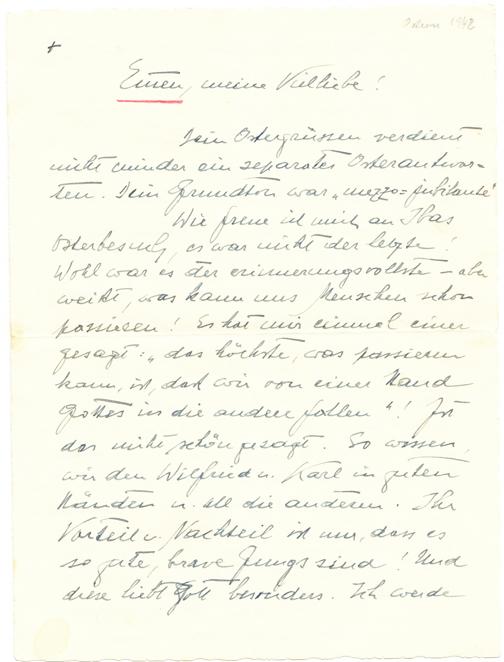 Ostern 1942
+
Emen, meine Vielliebe!
Dein Ostergrüssen verdient
nicht minder ein separates Osterantwor-
ten. Dein Grundton war „mezzo=jubilante“
Wie freue ich mich an Ibas
Osterbesuch, es war nicht der letzte!
Wohl war es der erinnerungsvollste – aber
weißt, was kann uns Menschen schon
passieren! Es hat mir einmal einer
gesagt: „das höchste, was passieren
kann, ist, daß wir von einer Hand
Gottes in die andere fallen“! Ist
das nicht schön gesagt. So wissen
wir den Wilfried u. Karl in guten
Händen u. all die anderen. Ihr
Vorteil u. Nachteil ist nur, dass es
so gute, brave Jungs sind! Und
diese liebt Gott besonders. Ich werde